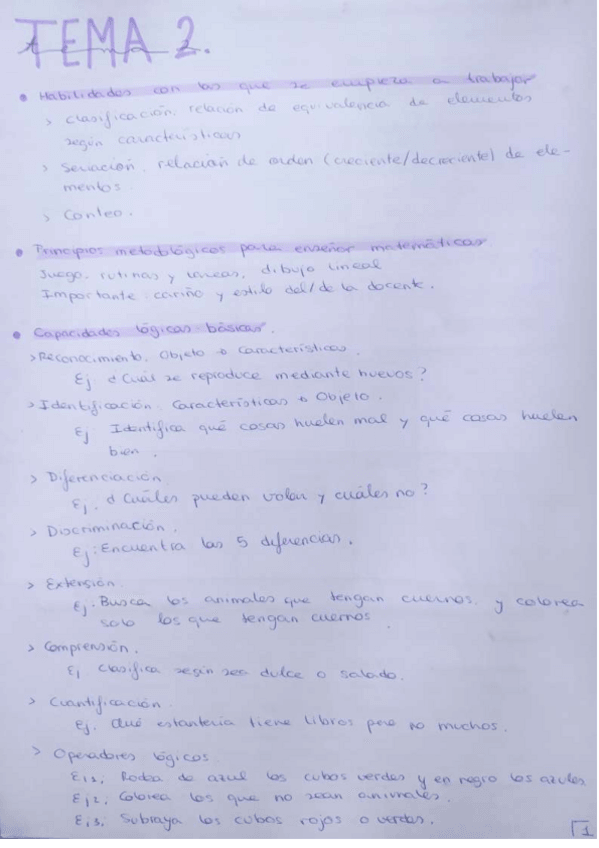 TEMA 2.
tema
• Habilidades con las que se empieza a trabajar
> Clasificación. relación de equivalencia de elementos
según características
> Seriación. relación de orden (creciente/decreciente) de ele-
mentos.
> Conteo.
• Principios metodológicos para enseñar matemáticas
Juego, rutinas y tareas, dibujo lineal
Importante: cariño y estilo del/de la docente.
• Capacidades lógicas básicas.
> Reconocimiento. Objeto → Características.
Ej ¿Cuál se reproduce mediante huevos?
> Identificación. Características → Objeto.
Ej Identifica qué cosas huelen mal y qué cosas huelen
bien.
> Diferenciación
Ej. ¿Cuáles pueden volar y cuáles no?
> Discriminación.
Ej: Encuentra las 5 diferencias.
> Extensión.
Ej. Busca los animales que tengan cuernos, y colorea
solo los que tengan cuernos.
> Comprensión.
Ej Clasifica según sea dulce o salado.
> Cuantificación.
Ej. Qué estantería tiene libros pero no muchos.
> Operadores lógicos
Ej1. Rodea de azul los cubos verdes y en negro los azules
Ej2. Colorea los que no sean animales.
Ej3. Subraya los cubos rojos o verdes.
1